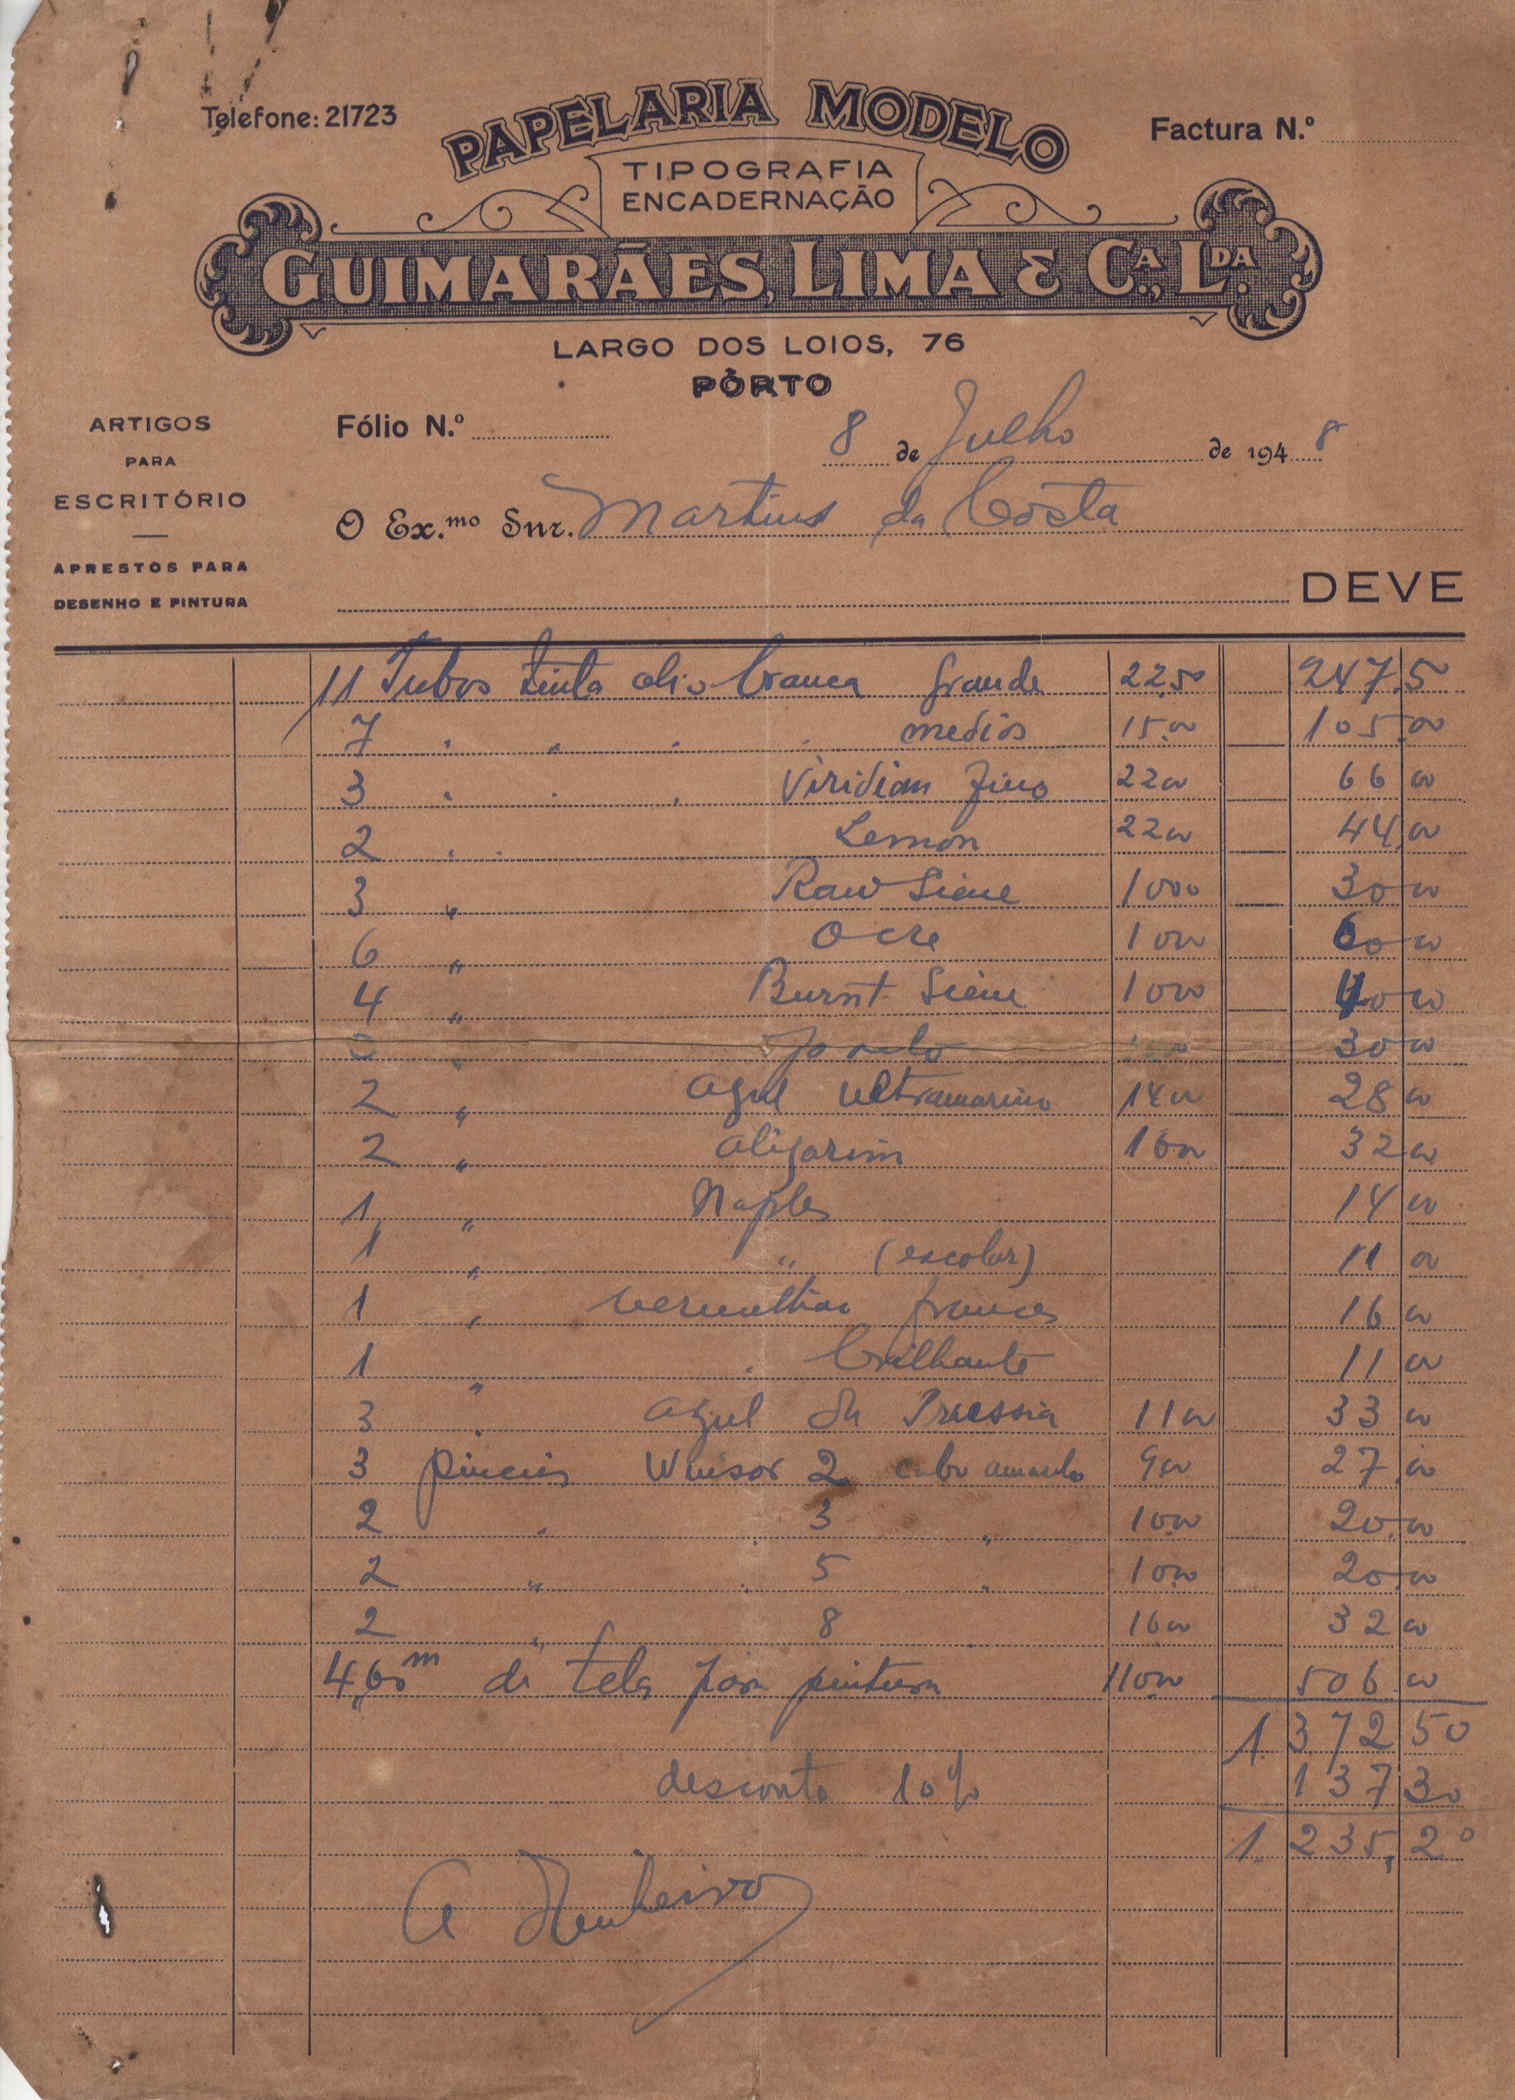 Telefone: 21723
PAPELARIA MODELO
Factura N.º
TIPOGRAFIA
ENCADERNAÇÃO
GUIMARÃES, LIMA & C.ª, L.DA
LARGO DOS LOIOS, 76
PÔRTO
ARTIGOS
PARA
ESCRITÓRIO
APRESTOS PARA
DESENHO E PINTURA
Fólio N.º
8 de Julho de 1948
O Ex.mo Snr. Martins da Costa
DEVE
11 Tubos tinta olio branca grande 22,50 247,5
7 " " " " medios 15,00 105,00
3 " " " Viridian fino 22 00 66 00
2 " " Lemon 22 00 44,00
3 " Raw Siene 10 00 30 00
6 " Ocre 10 00 60 00
4 " Burnt Siene 10 00 40 00
30 00
2 " Azul ultramarino 14 00 28 00
2 " Alizarin 16 00 32 00
1 " Naples 14 00
1 " " (escolar) 11 00
1 " Vermelhão frances 16 00
1 " " brilhante 11 00
3 " Azul da Prussia 11 00 33 00
3 pinceis Winsor 2 cabo amarelo 9 00 27,00
2 " " 3 " 10,00 20,00
2 " " 5 " 10,00 20,00
2 " 8 16 00 32 00
4,60 m de tela para pintura 110,00 506,00
1.372 50
desconto 10% 137 30
1.235,20